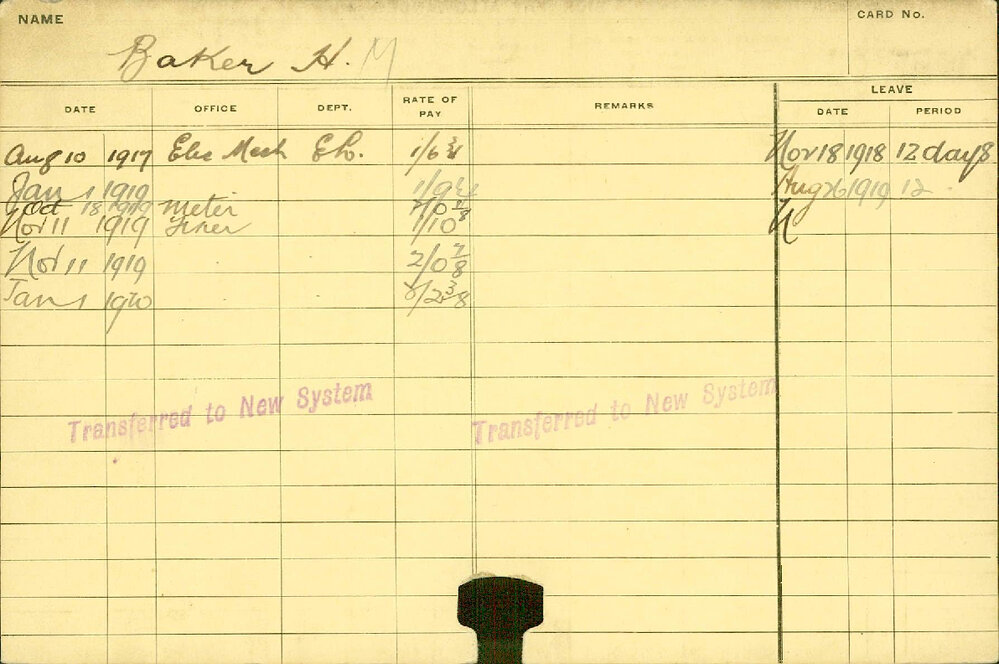 NAME
CARD No.
Baker H. M
DATE OFFICE DEPT. RATE OF PAY REMARKS LEAVE
DATE PERIOD
Aug 10 1917 Elec Mech 1/6 3/4 Nov 18 1918 12 days
Jan 1 1919 1/9 Aug 26 1919 12
Oct 18 1919 Meter 2/0
Nov 11 1919 1/10
Nov 11 1919 2/0 7/8
Jan 1 1920 2/2 3/8
Transferred to New System Transferred to New System